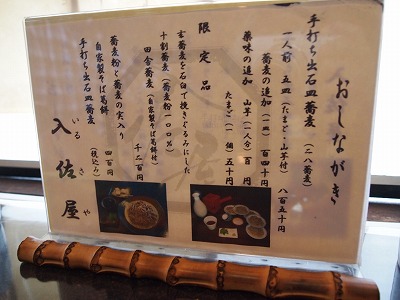 おしながき
手打ち出石皿蕎麦（二八蕎麦）
一人前 五皿（たまご・山芋付）八百五十円
蕎麦の追加（一皿）百四十円
薬味の追加 山芋（一人分）百円
たまご（一個）五十円
限定品
玄蕎麦を石臼で挽きぐるみにした
十割蕎麦（蕎麦粉一〇〇％）
田舎蕎麦（自家製そば葛餅付）千二百円
蕎麦粉と蕎麦の実入り
自家製そば葛餅 四百円
（税込み）
手打ち出石皿蕎麦
入佐屋
いるさや